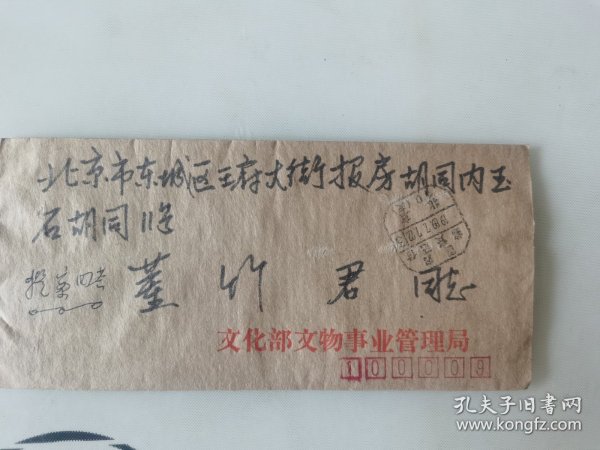 北京市东城区王府大街报房胡同内玉
石胡同11号
董竹君 同志
文化部文物事业管理局
100009
孔夫子旧书网
www.kongfz.com